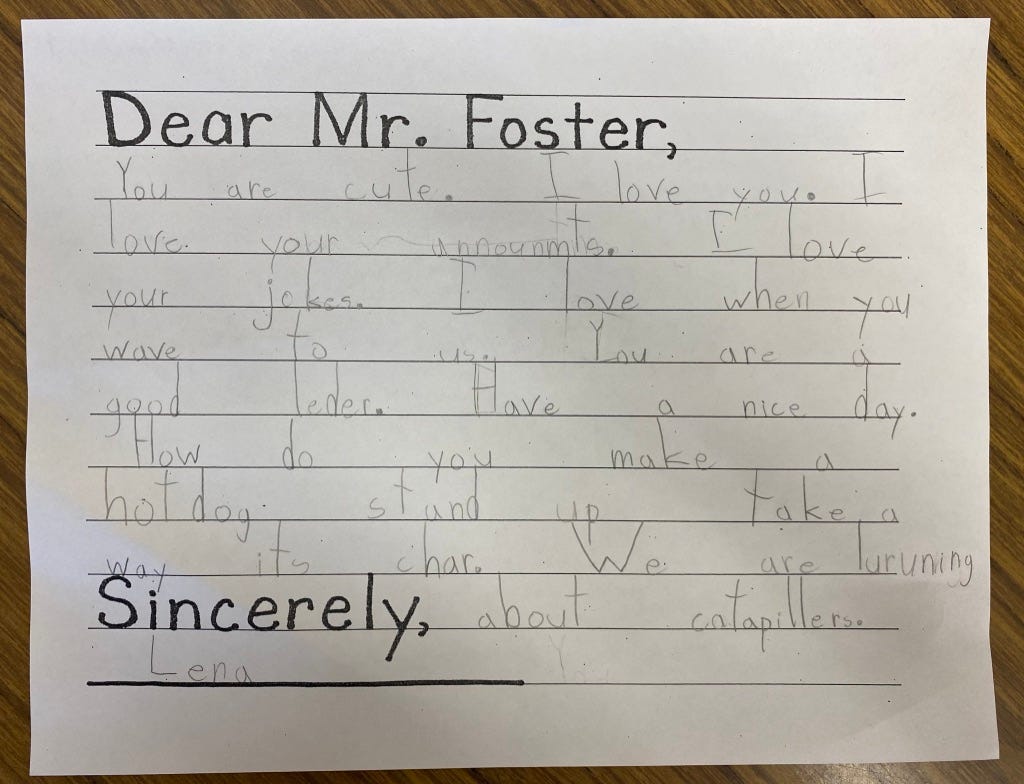 Dear Mr. Foster,
You are cute. I love you. I
love your announmts. I love
your jokes. I love when you
wave to us. You are a
good leder. Have a nice day.
How do you make a
hotdog stand up take a
way its char. We are luruning
Sincerely, about catapillers.
Lena